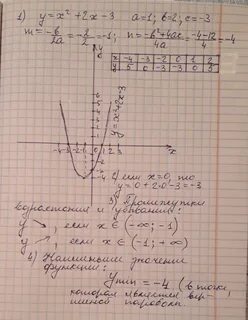 1) y=x²+2x-3 a=1; b=2; c=-3
m=-b/2a=-2/2=-1; n=-b²+4ac/4a=-4-12/4=-4
x -4 -3 -2 0 1 2
y 5 0 -3 -3 0 5
y
y=x²+2x-3
x
2) если x=0, то
y=0+2·0-3=-3
3) Промежутки
возрастания и убывания:
y ↘, если x∈(-∞;-1)
y ↗, если x∈(-1;+∞)
4) Наименьшее значение
функции:
ymin=-4 (в точке,
которая является вер-
шиной параболы.